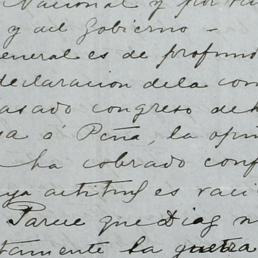 Nacional y por
y del Gobierno -
general es de profund
declaracion dela con
asado congreso de
sa ó Peña, la opin
ha cobrado conf
ya actitud es vaci
Parece que Diaz n
tamente la guerra